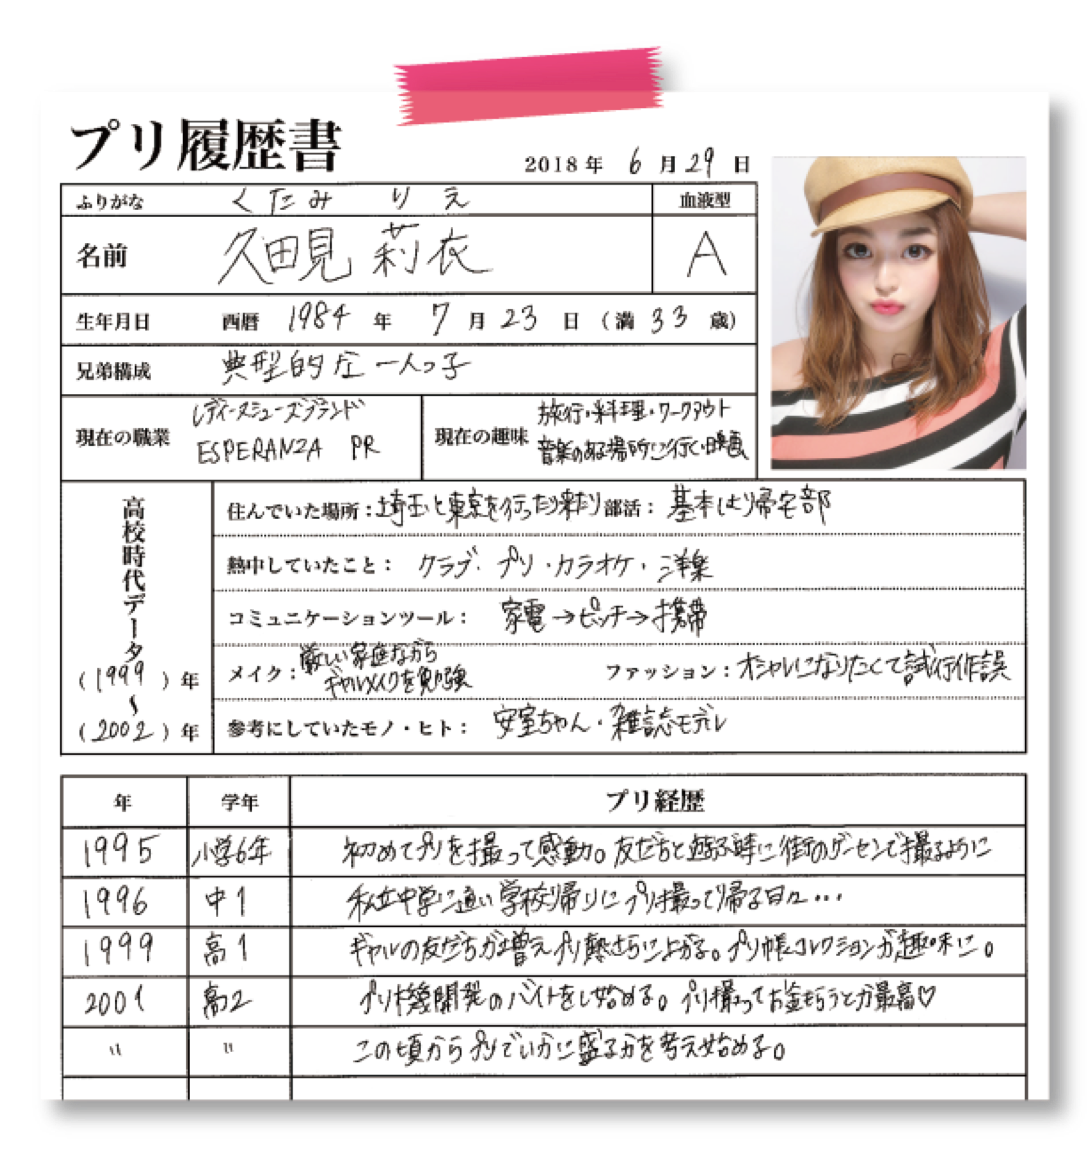 プリ履歴書
2018年 6月29日
ふりがな くたみ りえ 血液型
名前 久田見 莉衣 A
生年月日 西暦 1984年 7月23日（満33歳）
兄弟構成 典型的な一人っ子
現在の職業 レディースシューズブランド
ESPERANZA PR
現在の趣味 旅行・料理・ワークアウト
音楽のある場所に行く・映画
高校時代データ
（1999）年
〜
（2002）年
住んでいた場所：埼玉と東京を行ったり来たり 部活：基本は帰宅部
熱中していたこと：クラブ・プリ・カラオケ・洋楽
コミュニケーションツール：家電→ピッチ→携帯
メイク：厳しい家庭ながら
ギャルメイクを勉強
ファッション：オシャレになりたくて試行作誤
参考にしていたモノ・ヒト：安室ちゃん・雑誌モデル
年 学年 プリ経歴
1995 小学6年 初めてプリを撮って感動。友だちと遊ぶ時に街のゲーセンで撮るように
1996 中1 私立中学に通い学校帰りにプリ撮って帰る日々…
1999 高1 ギャルの友だちが増えプリ熱さらに上がる。プリ帳コレクションが趣味に。
2001 高2 プリ機開発のバイトをし始める。プリ撮ってお金もらうとか最高♡
〃 〃 この頃からプリでいかに盛るかを考え始める。